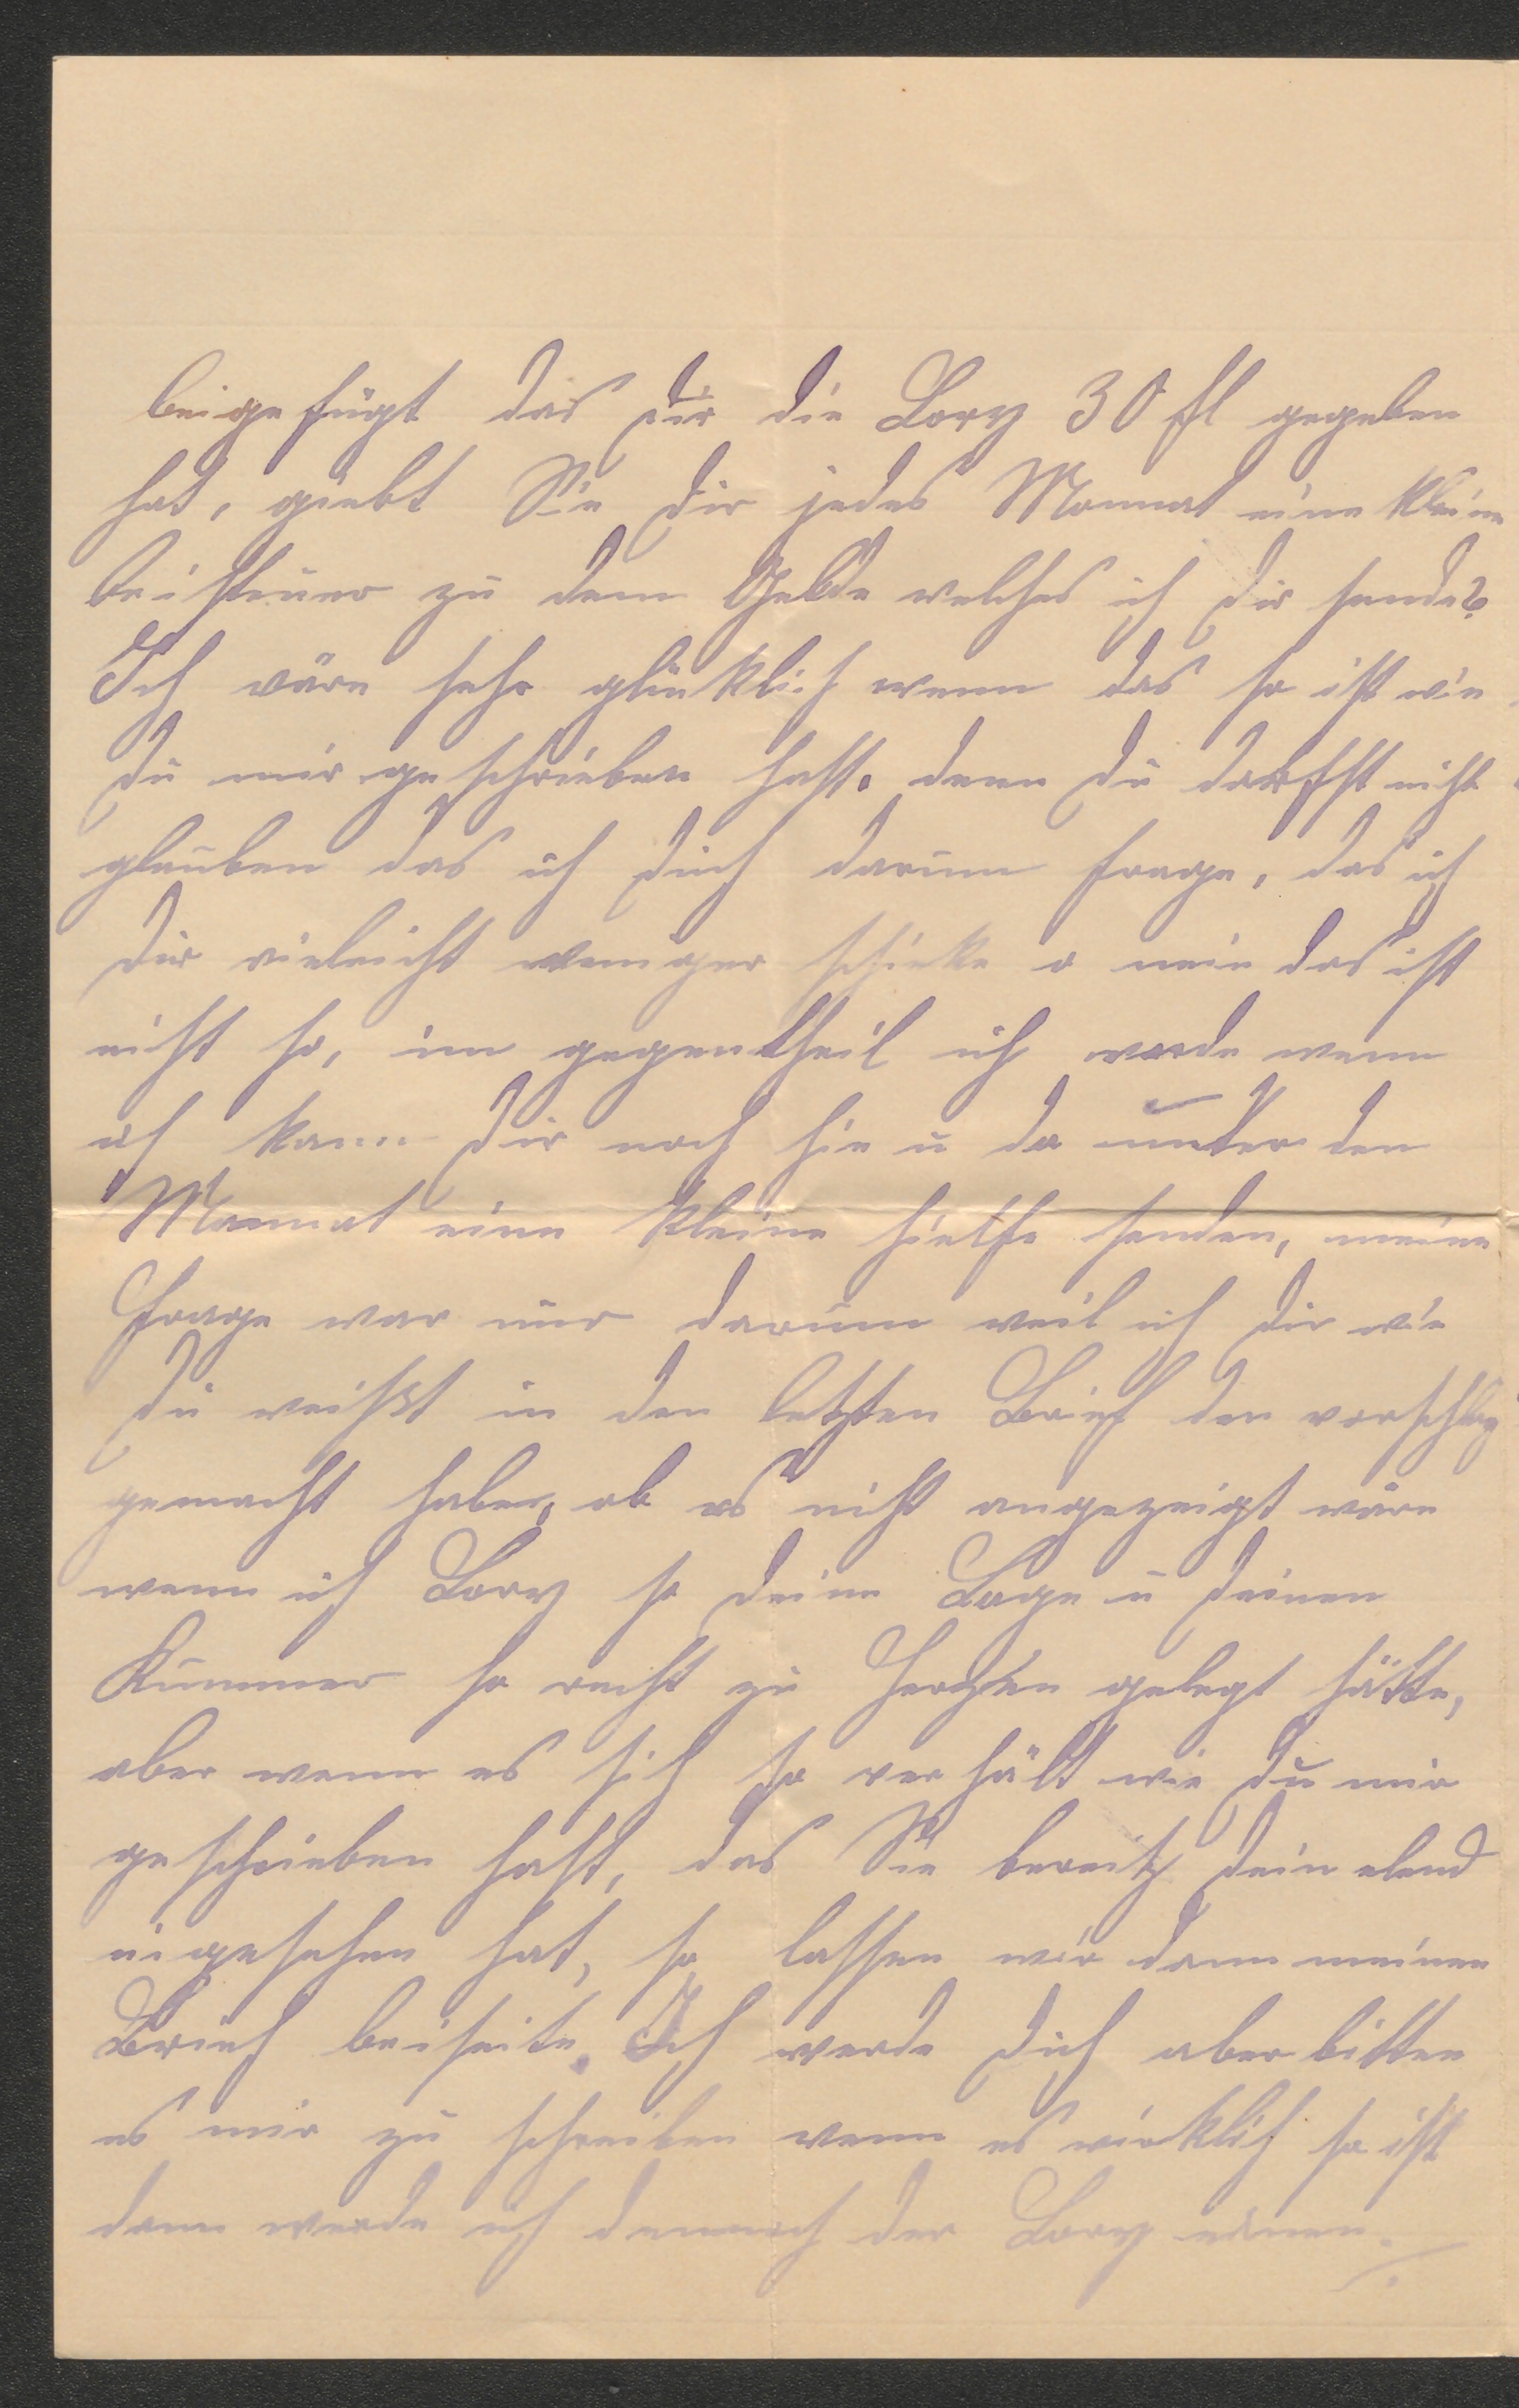 beigefügt das dir die Lory 30 fl gegeben
hat, giebt Sie dir jedes Monnat eine kleine
beisteuer zu dem Gelde welches ich dir sende?
Ich wäre sehr glücklich wenn das so ist wie
du mir geschrieben hast. denn du darfst nicht
glauben das ich dich darum frage, das ich
dir vieleicht weniger schicke o nein das ist
nicht so, im gegentheil ich werde wenn
ich kann dir noch hie u da unter den
Monnat eine kleine hielfe senden, meine
Frage war nur darum weil ich dir wie
du weißt in den letzten Brief den vorschlag
gemacht habe, ob es nicht angezeigt wäre
wenn ich Lory so deine Lage u deinen
Kummer so recht zu Herzen gelegt hätte,
aber wenn es sich so verhält wie du mir
geschrieben hast, das Sie bereitz dein elend
eigesehen hat, so lassen wir dann meinen
Brief beiseite. Ich werde dich aber bitten
es mir zu schreiben wenn es wirklich so ist
dann werde ich dennoch der Lory einen ./.